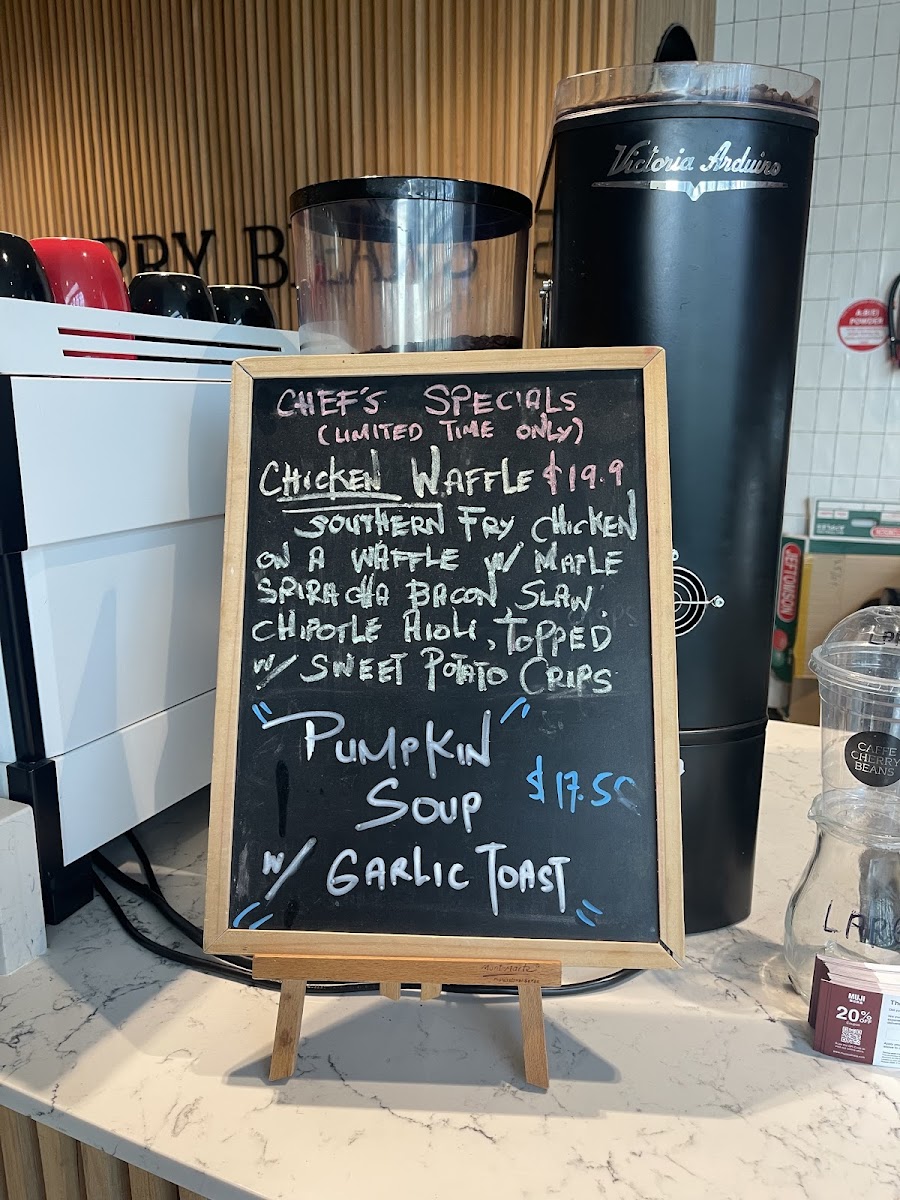 Victoria Arduino
RRY BEANS
CHEF'S SPECIALS
(LIMITED TIME ONLY)
CHICKEN WAFFLE $19.9
SOUTHERN FRY CHICKEN
ON A WAFFLE W/ MAPLE
SRIRACHA BACON, SLAW,
CHIPOTLE AIOLI, TOPPED
W/ SWEET POTATO CRIPS
"PUMPKIN"
SOUP $17.50
W/ GARLIC TOAST
JETTOMSON
CAFFE
CHERRY
BEANS
MUJI
20% OFF
Coupon